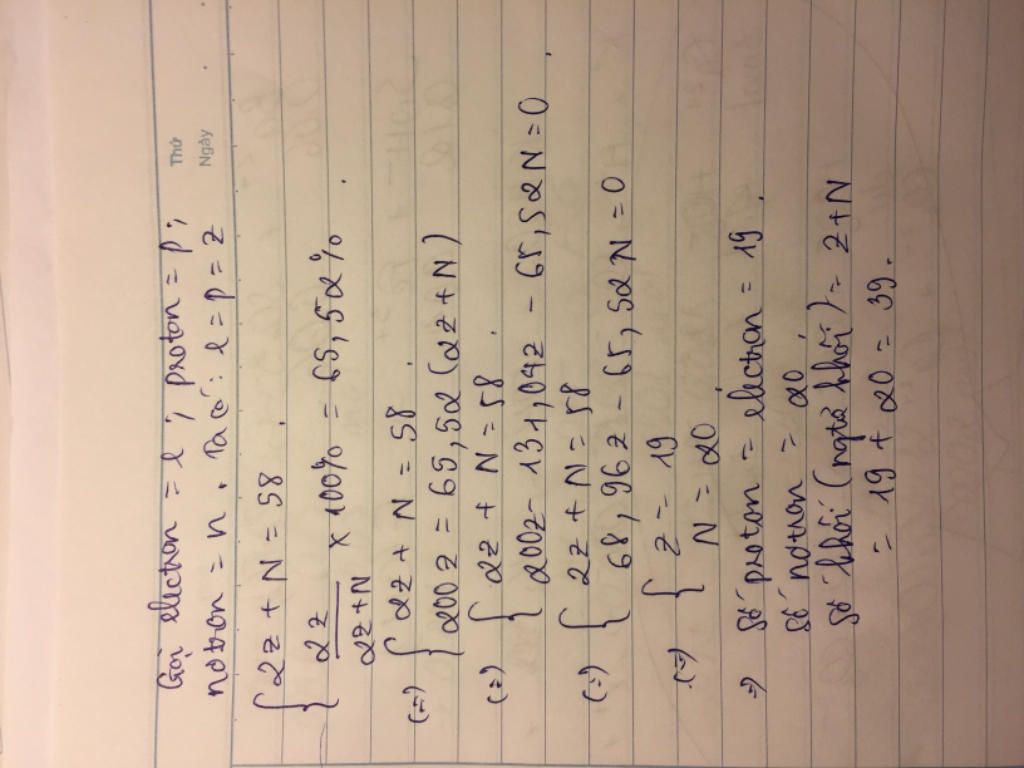 Thứ
Ngày
Gọi electron = e ; proton = p ;
nơtron = n . Ta có : e = p = z
{ 2z + N = 58
2z / 2z+N x 100% = 65,52%
(=) { 2z + N = 58
200z = 65,52 (2z + N)
(=) { 2z + N = 58
200z - 131,04z - 65,52N = 0
(=) { 2z + N = 58
68,96z - 65,52N = 0
(=) { z = 19
N = 20
=> Số proton = electron = 19.
Số nơtron = 20
Số khối (nguyên khối) = z + N
= 19 + 20 = 39.